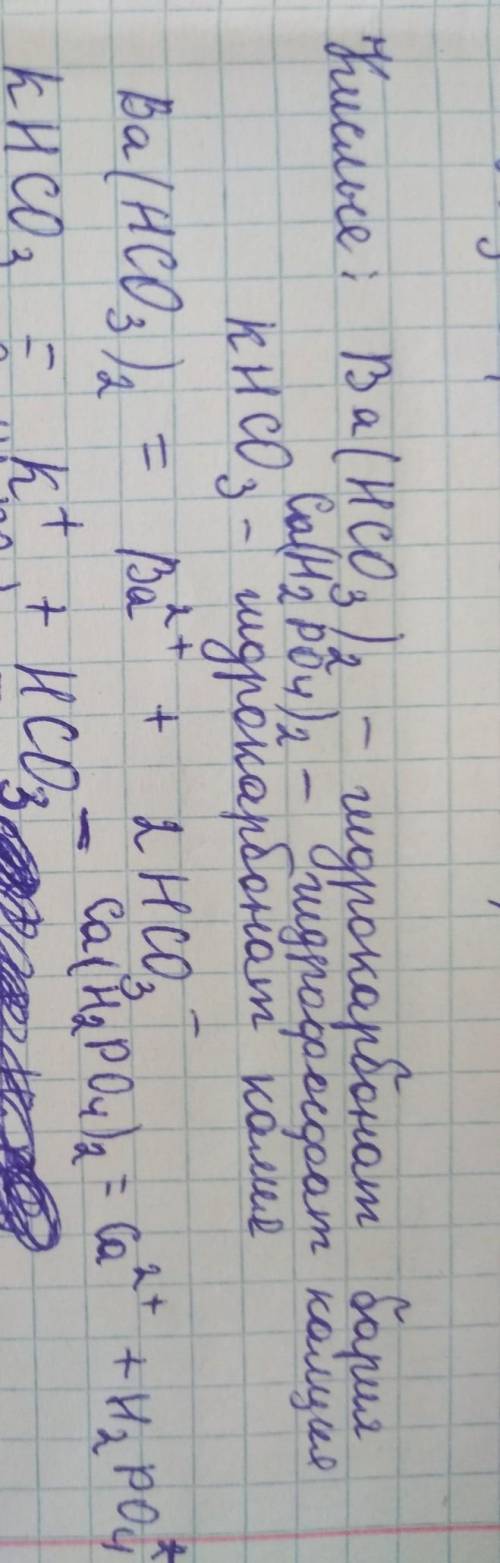 Кислые: Ba(HCO₃)₂ - гидрокарбонат бария
Ca(H₂PO₄)₂ - гидрофосфат кальция
KHCO₃ - гидрокарбонат калия
Ba(HCO₃)₂ = Ba²⁺ + 2HCO₃⁻
Ca(H₂PO₄)₂ = Ca²⁺ + H₂PO₄
KHCO₃ = K⁺ + HCO₃⁻